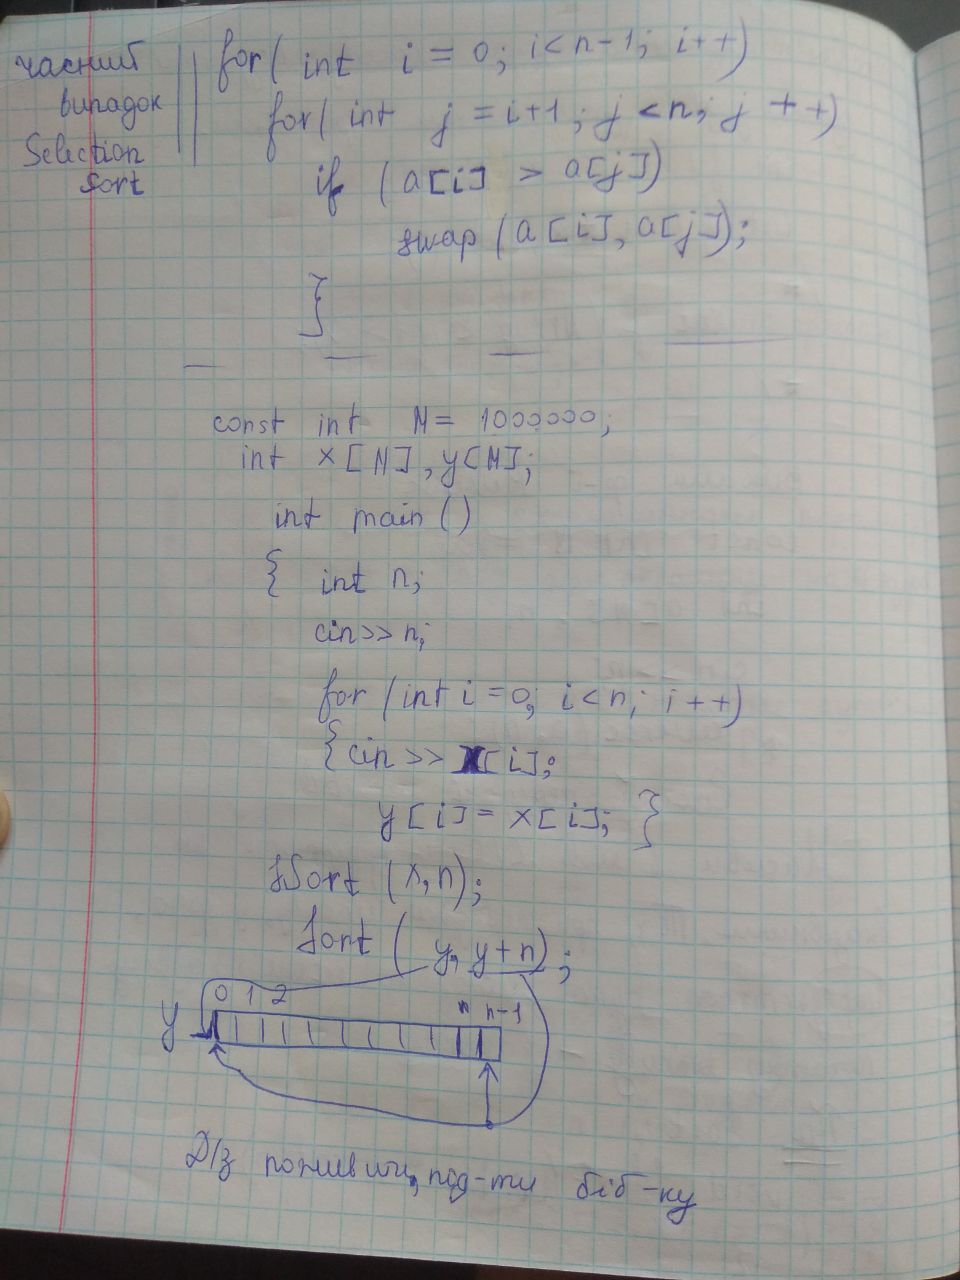 часний
випадок
Selection
sort
for( int i = 0; i < n-1; i++)
for( int j = i+1; j < n; j ++)
if (a[i] > a[j])
swap (a[i], a[j]);
}
const int N = 1000000;
int x[N], y[N];
int main ()
{ int n;
cin>> n;
for (int i = 0; i < n; i ++)
{ cin >> x[i];
y[i] = x[i]; }
Sort (x, n);
Sort ( y, y+n);
0 1 2
n n-1
y
Д/з під-ти біб-ку